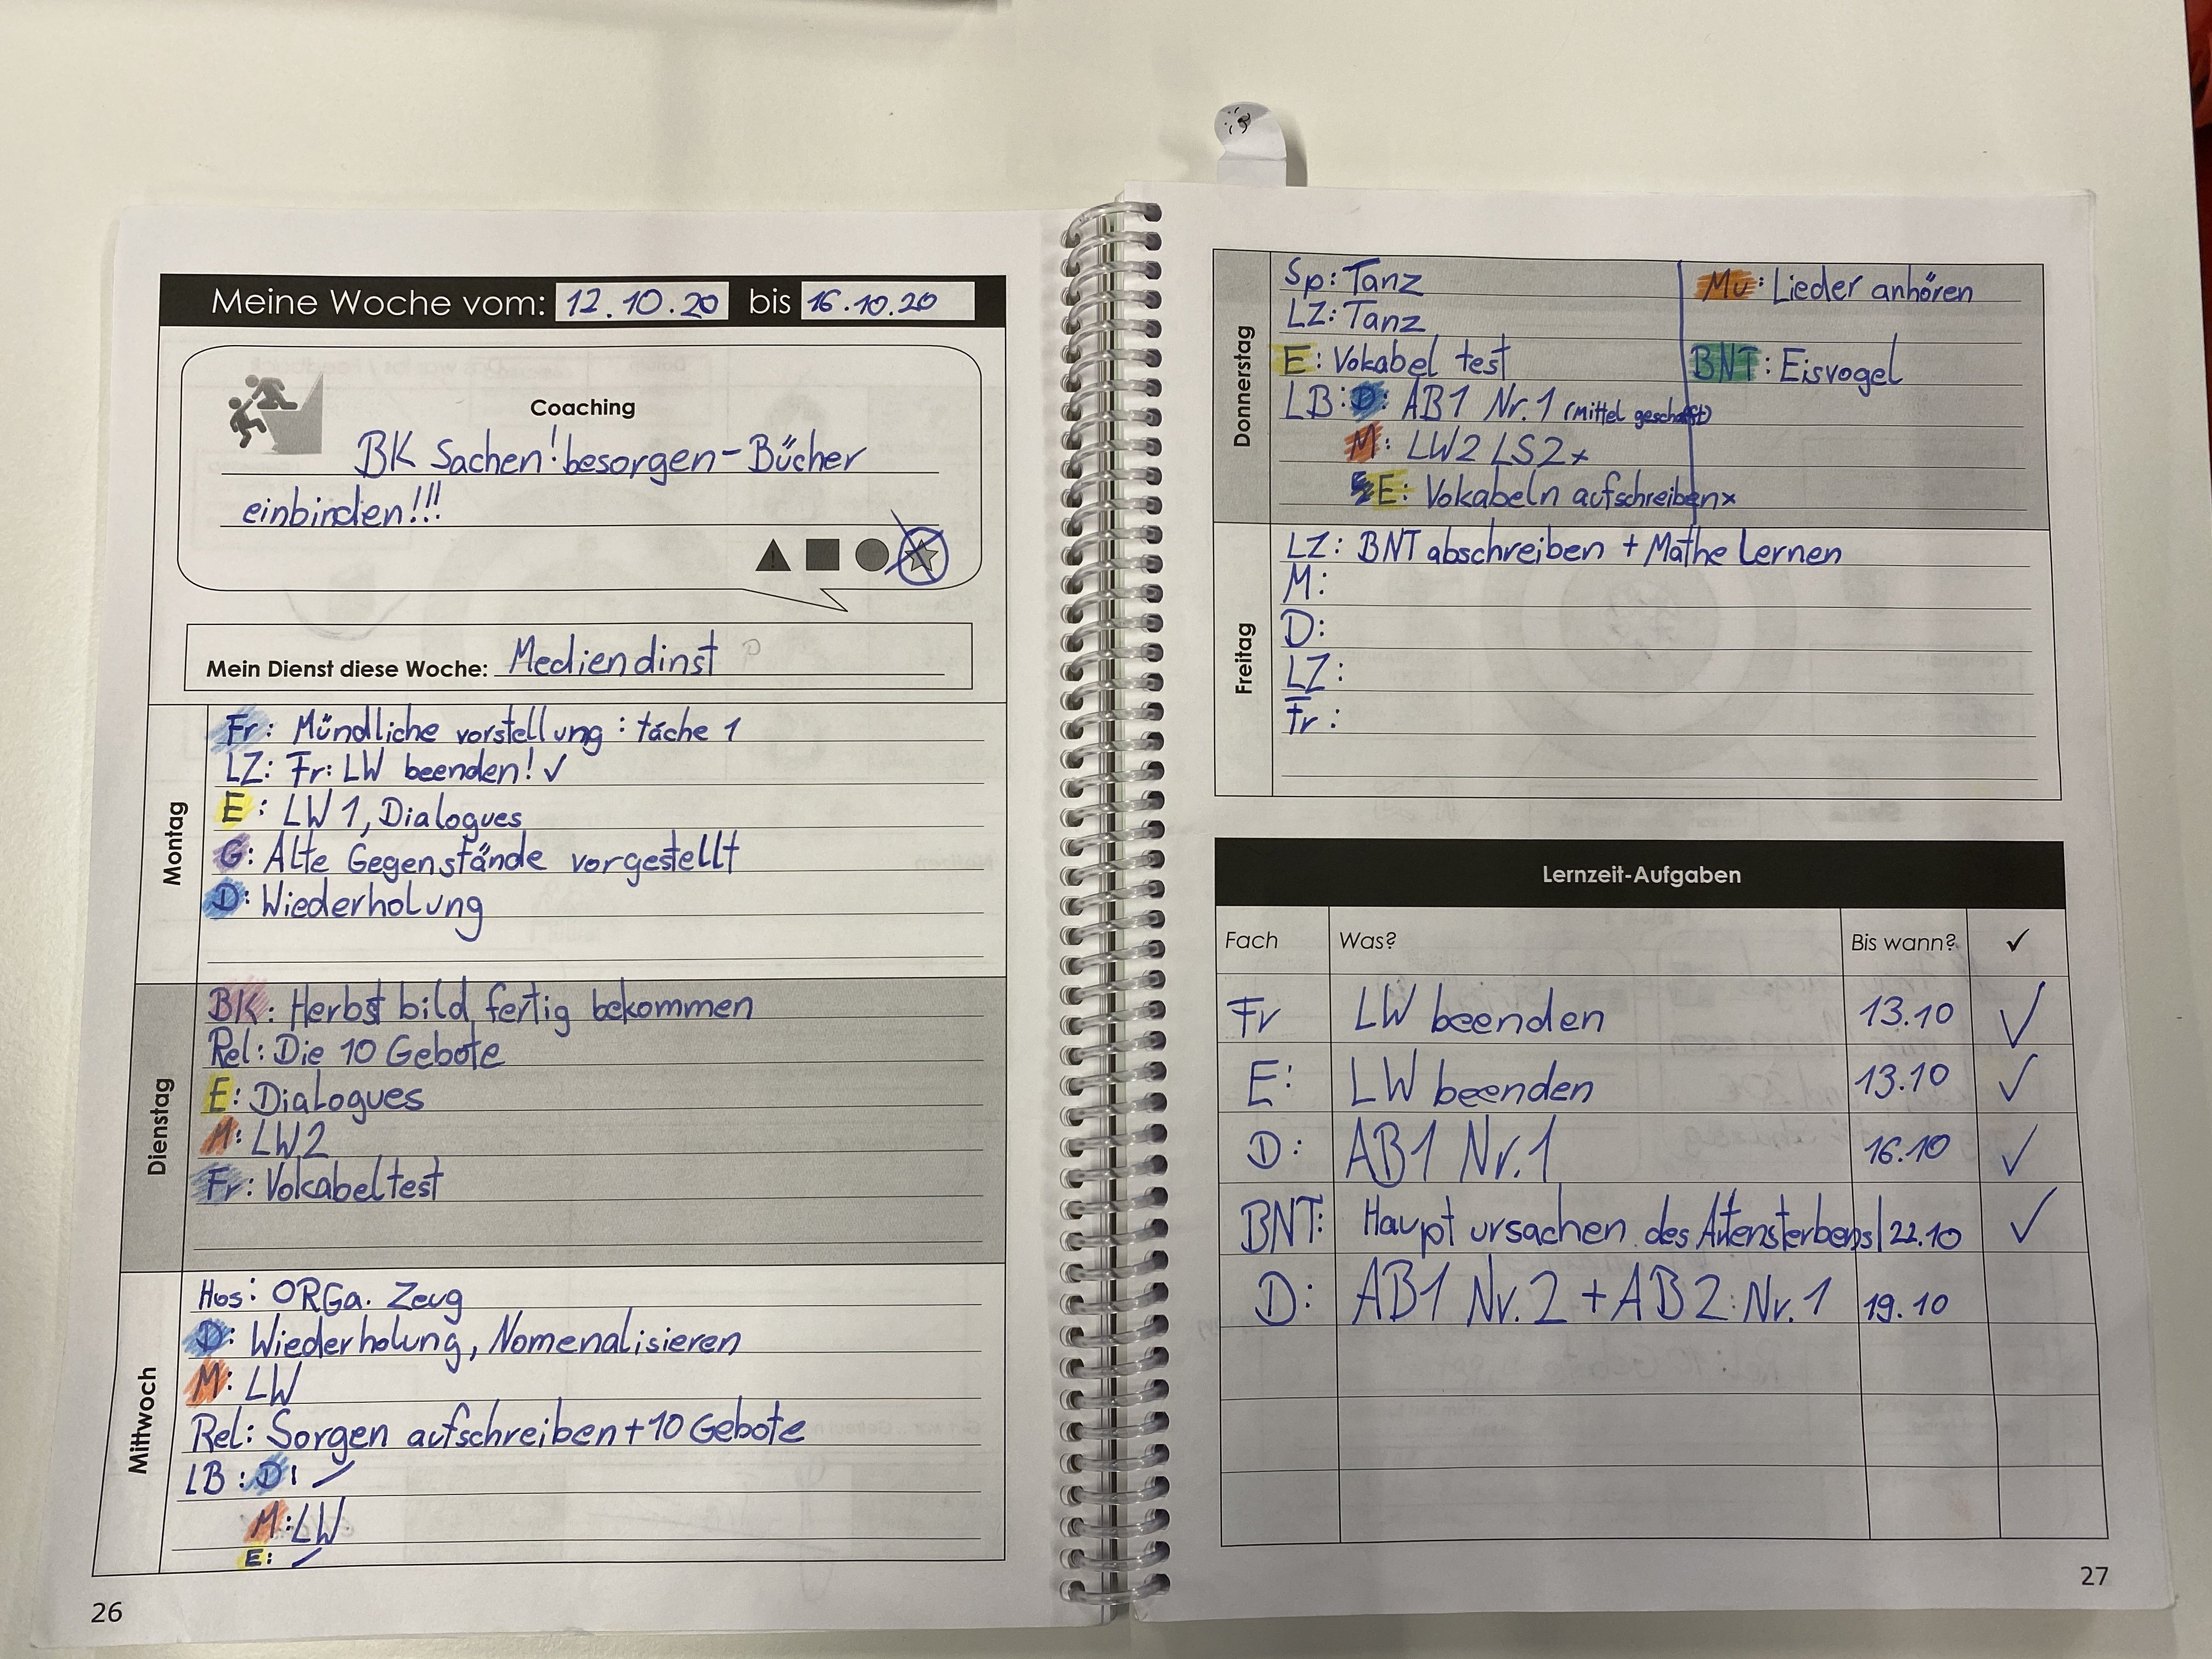 Meine Woche vom: 12.10.20 bis 16.10.20
Coaching
BK Sachen! besorgen - Bücher
einbinden!!!
Mein Dienst diese Woche: Mediendinst
Montag
Fr: Mündliche vorstellung : tâche 1
LZ: Fr: LW beenden! ✓
E: LW 1, Dialogues
G: Alte Gegenstände vorgestellt
D: Wiederholung
Dienstag
BK: Herbst bild fertig bekommen
Rel: Die 10 Gebote
E: Dialogues
M: LW2
Fr: Vokabeltest
Mittwoch
Hos: ORGa. Zeug
D: Wiederholung, Nomenalisieren
M: LW
Rel: Sorgen aufschreiben + 10 Gebote
LB: D: /
M: LW
E: /
26
Donnerstag
Sp: Tanz
LZ: Tanz
E: Vokabel test
LB: D: AB1 Nr. 1 (Mittel geschafft)
M: LW2 LS2 x
E: Vokabeln aufschreiben x
Mu: Lieder anhören
BNT: Eisvogel
Freitag
LZ: BNT abschreiben + Mathe Lernen
M:
D:
LZ:
Fr:
Lernzeit-Aufgaben
Fach Was? Bis wann? ✓
Fr LW beenden 13.10 ✓
E: LW beenden 13.10 ✓
D: AB1 Nr. 1 16.10 ✓
BNT: Haupt ursachen des Artensterbens 22.10 ✓
D: AB1 Nr. 2 + AB2: Nr. 1 19.10
27